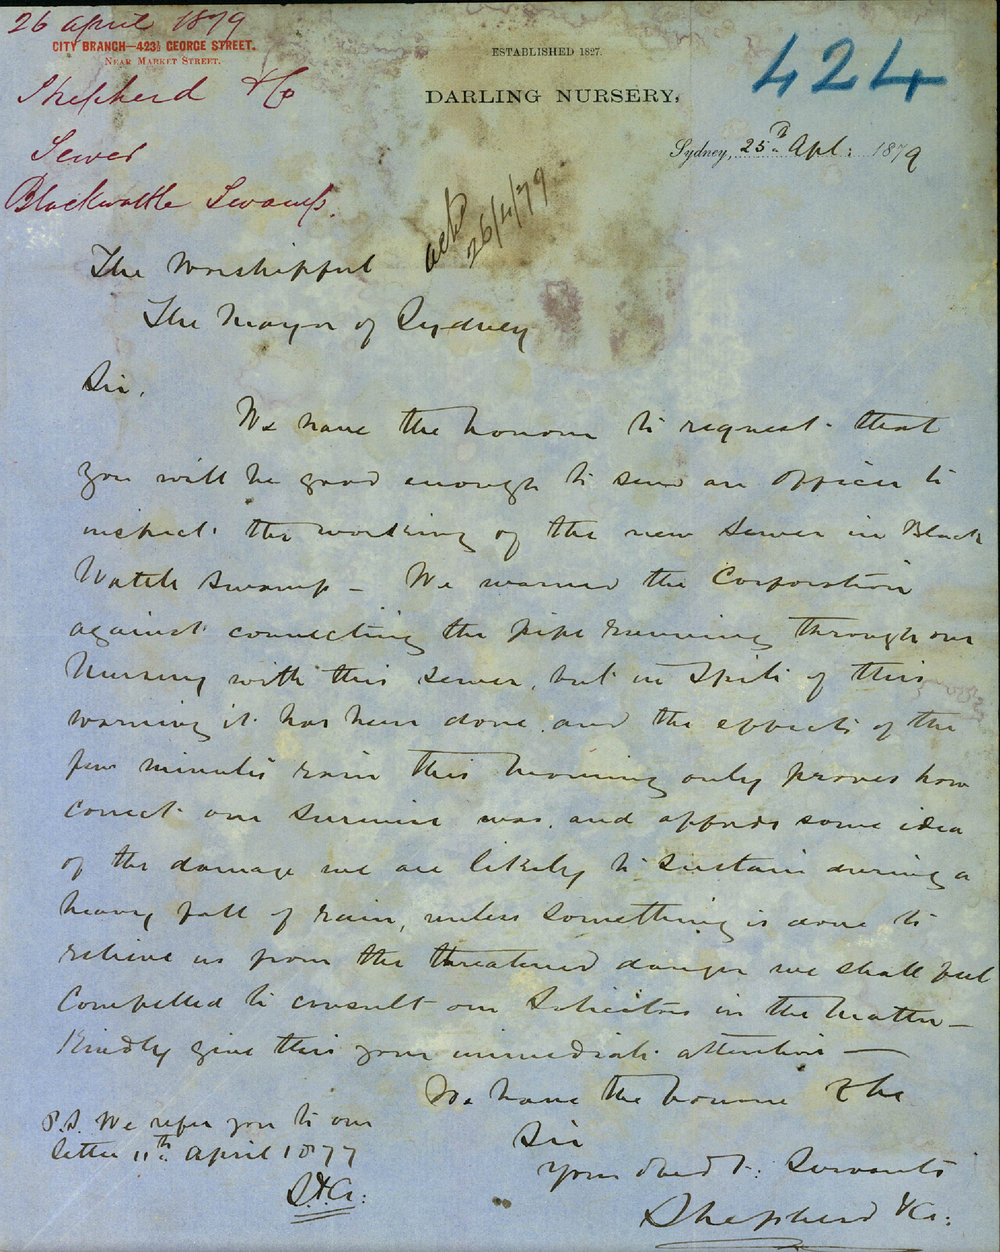 26 April 1879
CITY BRANCH—423½ GEORGE STREET.
NEAR MARKET STREET.
Shepherd & Co
Sewer
Blackwattle Swamp.
ESTABLISHED 1827.
DARLING NURSERY,
424
Sydney, 25th Apl: 1879
ack
26/4/79
The Worshipful
The Mayor of Sydney
Sir,
We have the honour to request that
you will be good enough to send an Officer to
inspect the working of the new Sewer in Black
Wattle Swamp – We warned the Corporation
against connecting the pipe running through our
Nursery with this Sewer, but in Spite of this
warning it has been done, and the effects of the
few minutes rain this morning only proves how
correct our surmise was, and affords some idea
of the damage we are likely to Sustain during a
heavy fall of rain, unless Something is done to
relieve us from the threatened danger we shall feel
Compelled to consult our Solicitors in the Matter –
Kindly give this your immediate attention –
We have the honour &be
Sir
Your obedt: Servants
Shepherd & Co:
P.S. We refer you to our
letter 11th April 1877
S. & Co: